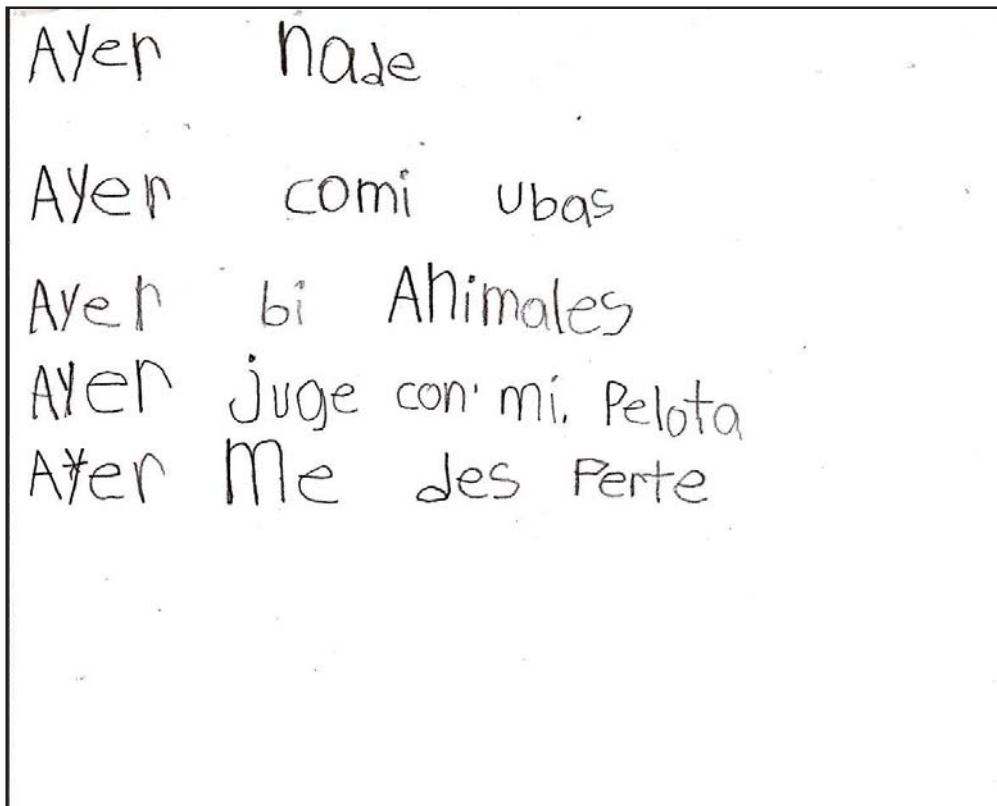 Ayer nade
Ayer comi ubas
Ayer bi Animales
Ayer juge con mi. Pelota
Ayer Me des Perte